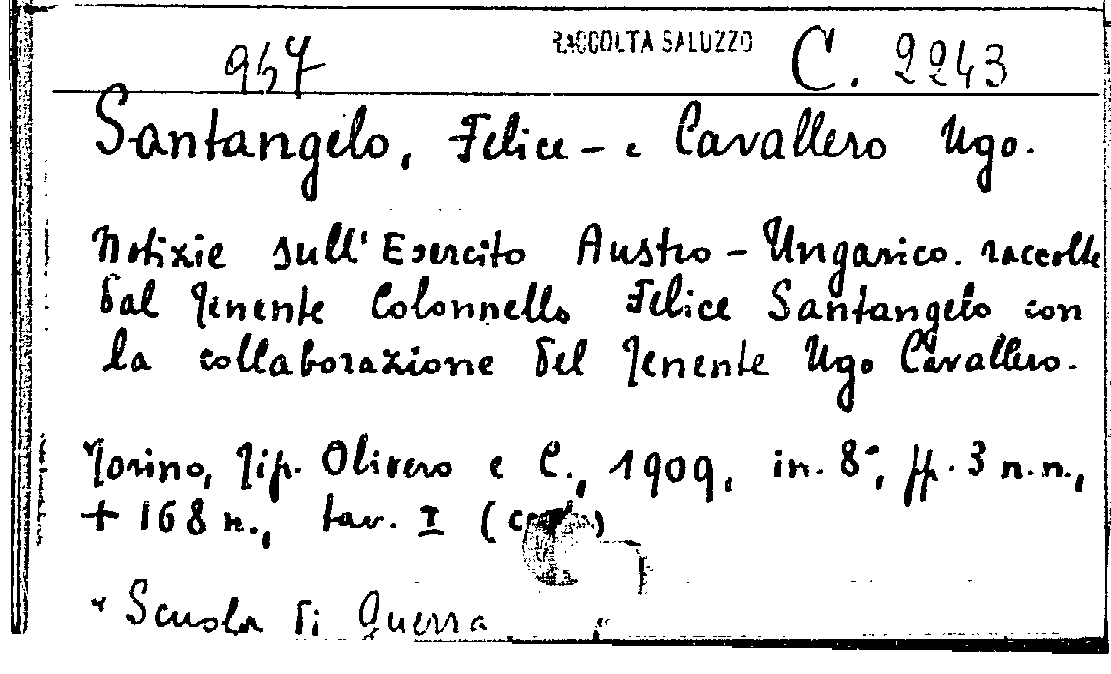 957 RACCOLTA SALUZZO C. 2243
Santangelo, Felice - e Cavallero Ugo.
Notizie sull'Esercito Austro-Ungarico. raccolte
dal Tenente Colonnello Felice Santangelo con
la collaborazione del Tenente Ugo Cavallero.
Torino, Tip. Olivero e C., 1909, in. 8°, ff. 3 n.n.,
+ 168 n., tav. I
"Scuola di Guerra "